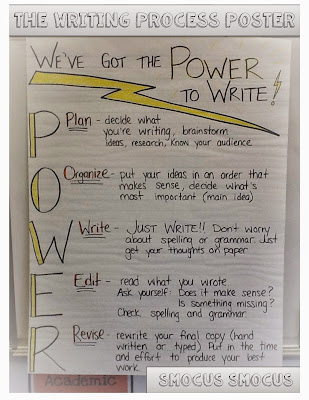 THE WRITING PROCESS POSTER
WE'VE GOT THE POWER
TO WRITE!
P
Plan - decide what
you're writing, brainstorm
ideas, research, know your audience
O
Organize - put your ideas in an order that
makes sense, decide what's
most important (main idea)
W
Write - JUST WRITE!! Don't worry
about spelling or grammar. Just
get your thoughts on paper
E
Edit - read what you wrote
Ask yourself: Does it make sense?
Is something missing?
Check spelling and grammar
R
Revise - rewrite your final copy (hand
written or typed) Put in the time
and effort to produce your best
work
Academic
SMOCUS SMOCUS